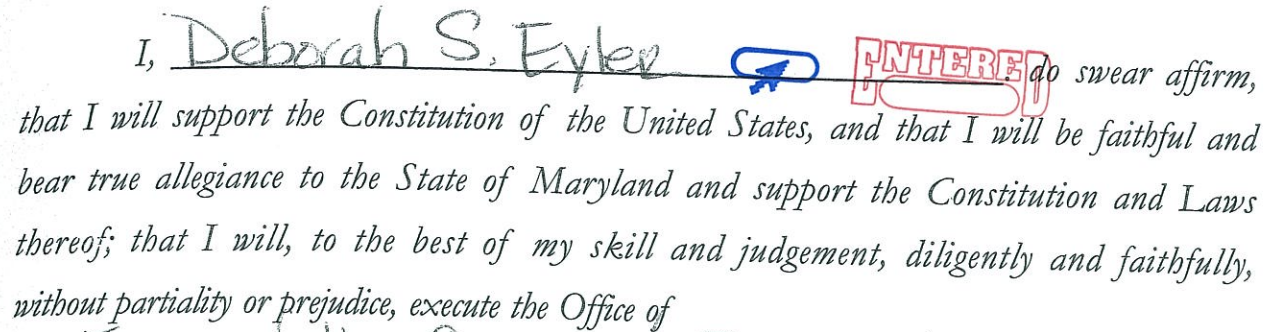 I, Deborah S. Eyler ENTERED do swear affirm,
that I will support the Constitution of the United States, and that I will be faithful and
bear true allegiance to the State of Maryland and support the Constitution and Laws
thereof; that I will, to the best of my skill and judgement, diligently and faithfully,
without partiality or prejudice, execute the Office of